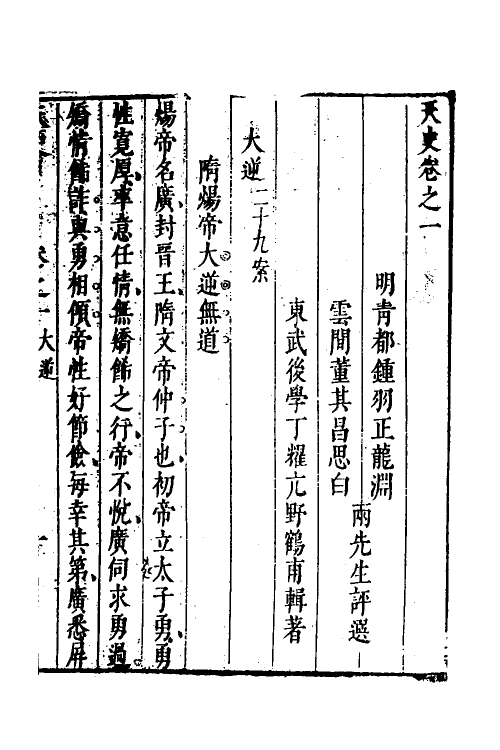 天史卷之一
明青都鍾羽正龍淵
雲間董其昌思白
兩先生評選
東武後學丁耀亢野鶴甫輯著
大逆二十九案
隋煬帝大逆無道
煬帝名廣封晉王隋文帝仲子也初帝立太子勇勇
性寬厚率意任情無矯飾之行帝不悅廣伺求勇過
矯情飾詐與勇相傾帝性好節儉每幸其第廣悉屏
卷之一 大逆
一